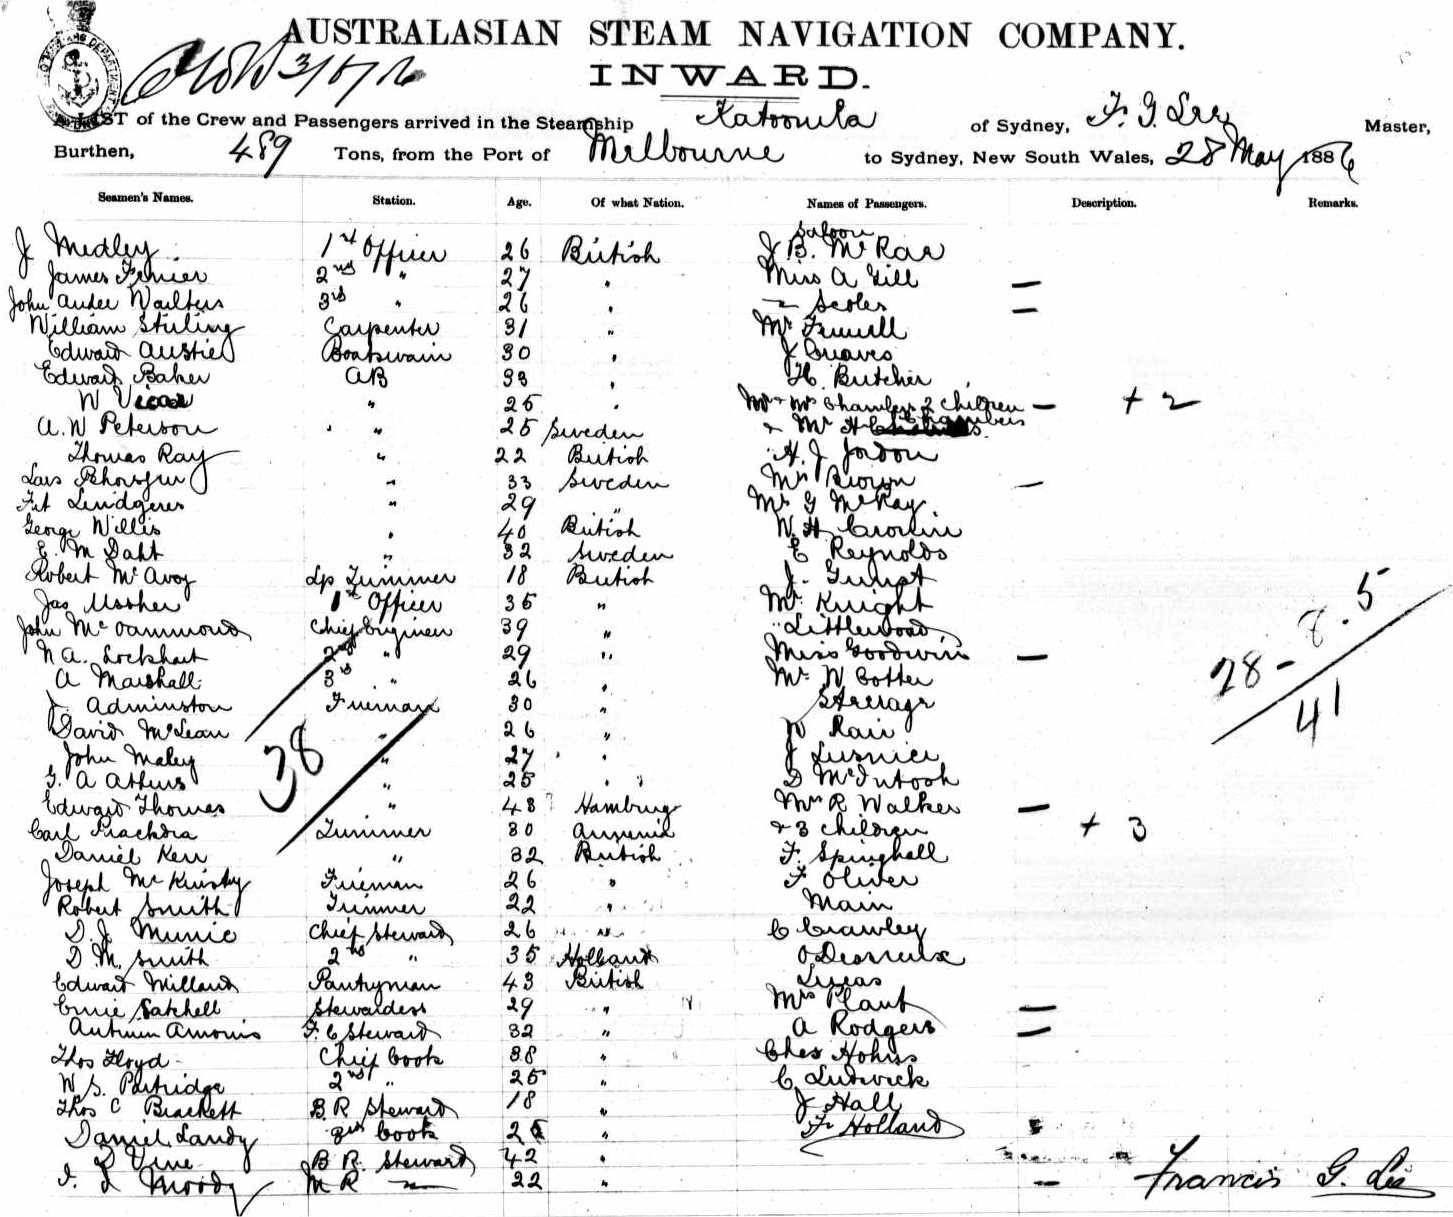 AUSTRALASIAN STEAM NAVIGATION COMPANY.
INWARD.
A LIST of the Crew and Passengers arrived in the Steamship Katoomba of Sydney, F. G. Lee Master,
Burthen, 489 Tons, from the Port of Melbourne to Sydney, New South Wales, 28 May 1886
Seamen's Names. Station. Age. Of what Nation. Names of Passengers. Description. Remarks.
Saloon
J Medley 1st Officer 26 British J B. McRae
James 2nd " 27 " Miss A Gill —
John Walters 3rd " 26 " " Scoles —
William Stirling Carpenter 31 " Mr
Edward Boatswain 30 " J Greaves
Edward Baker AB 33 " H. Butcher
W " 25 " Mr & Mrs Chambers 2 Children — + 2
A. W Peterson " " 25 Sweden & Mr H Chambers
Thomas Ray " 22 British " H. J Jordon
Lars " 33 Sweden Mrs Brown —
Lindgren " 29 " Mr G McKay
George Willis " 40 British W. H
E. M Dahl " 32 Sweden E Reynolds
Robert McAvoy Lp Trimmer 18 British J.
Jas Mosher 1st Officer 35 " Mr Knight
John Chief Engineer 39 " " Littlewood
N A. Lockhart 2nd " 29 " Miss Goodwin —
A Marshall 3rd " 26 " Mr W Cotter
J. Adminston Fireman 30 " Steerage
David McLean " 26 " W Rain
John Maley " 27 " J
G. A Atkins " 25 " D McIntosh
Edward Thomas " 43 Hamburg Mrs R Walker —
Carl Trimmer 30 & 3 Children + 3
Daniel Kerr " 32 British F. Spinghall
Joseph Fireman 26 " F Oliver
Robert Smith Trimmer 22 " Main
D J Chief Steward 26 " C Crawley
D. M. Smith 2nd " 35 Holland
Edward Millard Pantryman 43 British Lucas
Ernie Satchell Stewardess 29 " Mrs Plant —
F. C Steward 32 " A Rodgers —
Thos Floyd Chief Cook 38 " Chas
W. S. Partridge 2nd " 25 " C Ludwick
Thos C Brackett B. R. Steward 18 " J Hall
Daniel Landy 3rd Cook " F. Holland
D Vine B R. Steward 42 "
Moody M R " 22 " —
38
28 - 8. 5
41
Francis G. Lee